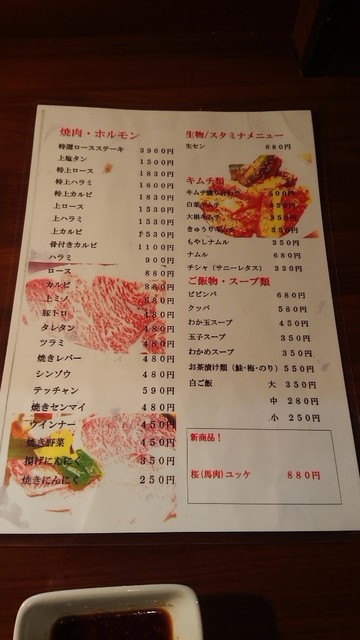 焼肉・ホルモン
特選ロースステーキ 3960円
上塩タン 1500円
特上ロース 1830円
特上ハラミ 1800円
特上カルビ 1830円
上ロース 1530円
上ハラミ 1530円
上カルビ 1530円
骨付きカルビ 1100円
ハラミ 900円
ロース 880円
カルビ 880円
上ミノ 680円
豚トロ 480円
タレタン 480円
ツラミ 480円
焼きレバー 480円
シンゾウ 480円
テッチャン 590円
焼きセンマイ 480円
ウインナー 450円
焼き野菜 450円
揚げにんにく 350円
焼きにんにく 250円
生物/スタミナメニュー
生セン 680円
キムチ類
キムチ盛り合わせ 800円
白菜キムチ 350円
大根キムチ 350円
きゅうりキムチ 350円
もやしナムル 350円
ナムル 680円
チシャ(サニーレタス) 330円
ご飯物・スープ類
ビビンバ 680円
クッパ 580円
わか玉スープ 450円
玉子スープ 350円
わかめスープ 350円
お茶漬け類(鮭・梅・のり) 550円
白ご飯 大 350円
中 280円
小 250円
新商品!
桜(馬肉)ユッケ 880円